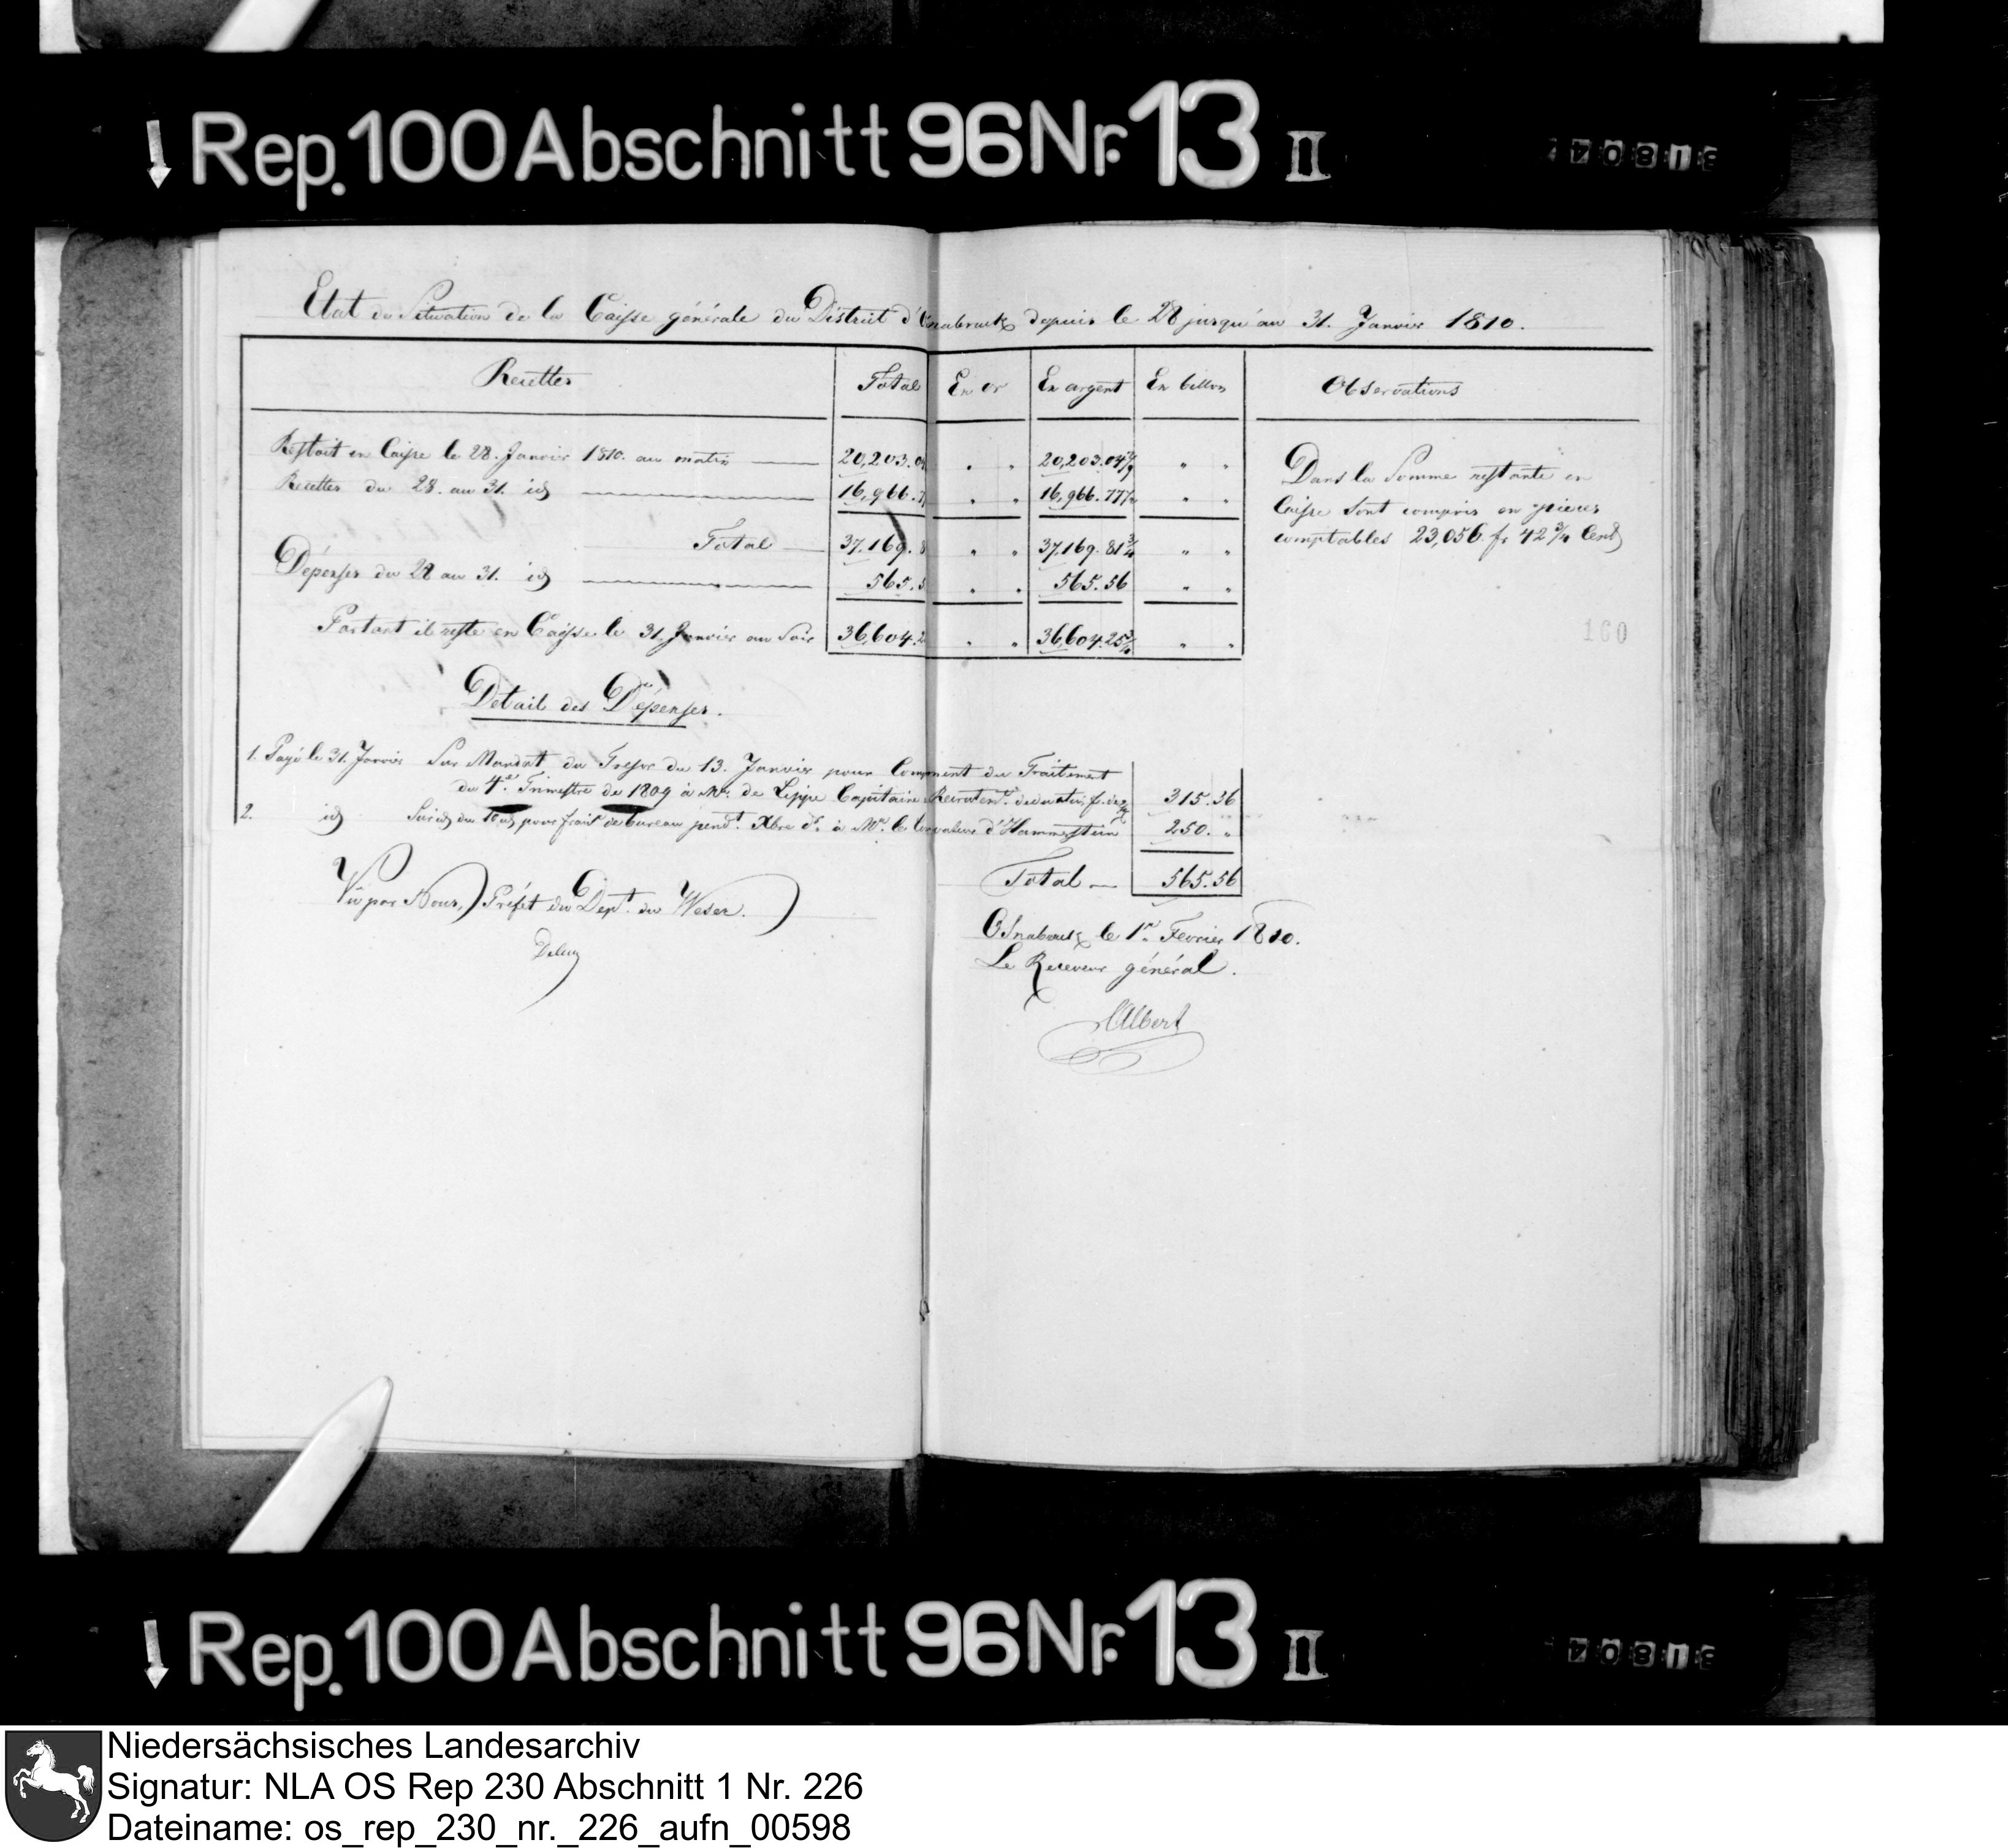 Rep. 100 Abschnitt 96 Nr. 13 II
Etat de Situation de la Caisse générale du District d'Osnabruck depuis le 28 jusqu'au 31. Janvier 1810.
Recettes Total En or En argent En billon Observations
Restoit en Caisse le 28. Janvier 1810. au matin 20,203.04 " " 20,203.04¾ " "
Recettes du 28. au 31. id 16,966.7 " " 16,966.77 " "
Total 37.169.8 " " 37.169.81¾ " "
Dépenses du 28 au 31. id 565.5 " " 565.56 " "
Partant il reste en Caisse le 31. Janvier au Soir 36,604.2 " " 36,604.25¾ " "
Dans la Somme restante en
Caisse sont compris en pieces
comptables 23,056 fr 42¾ Cent
160
Detail des Dépenses.
1. Payé le 31. Janvier Sur Mandat du Tresor du 13. Janvier pour Complement du Traitement
du 4e. Trimestre de 1809 à Mr. de Lippe Capitaine Recrutemt. 315.56
2. id Sur id du 16 id pour frais de bureau pendt. Xbre dr. à Mr. le d'Hammerstein 250. "
Total 565.56
Vu par Nous, Préfet du Dept. du Weser.
Osnabruck le 1er. Fevrier 1810.
Le Receveur général.
Albert
Rep. 100 Abschnitt 96 Nr. 13 II
Niedersächsisches Landesarchiv
Signatur: NLA OS Rep 230 Abschnitt 1 Nr. 226
Dateiname: os_rep_230_nr._226_aufn_00598